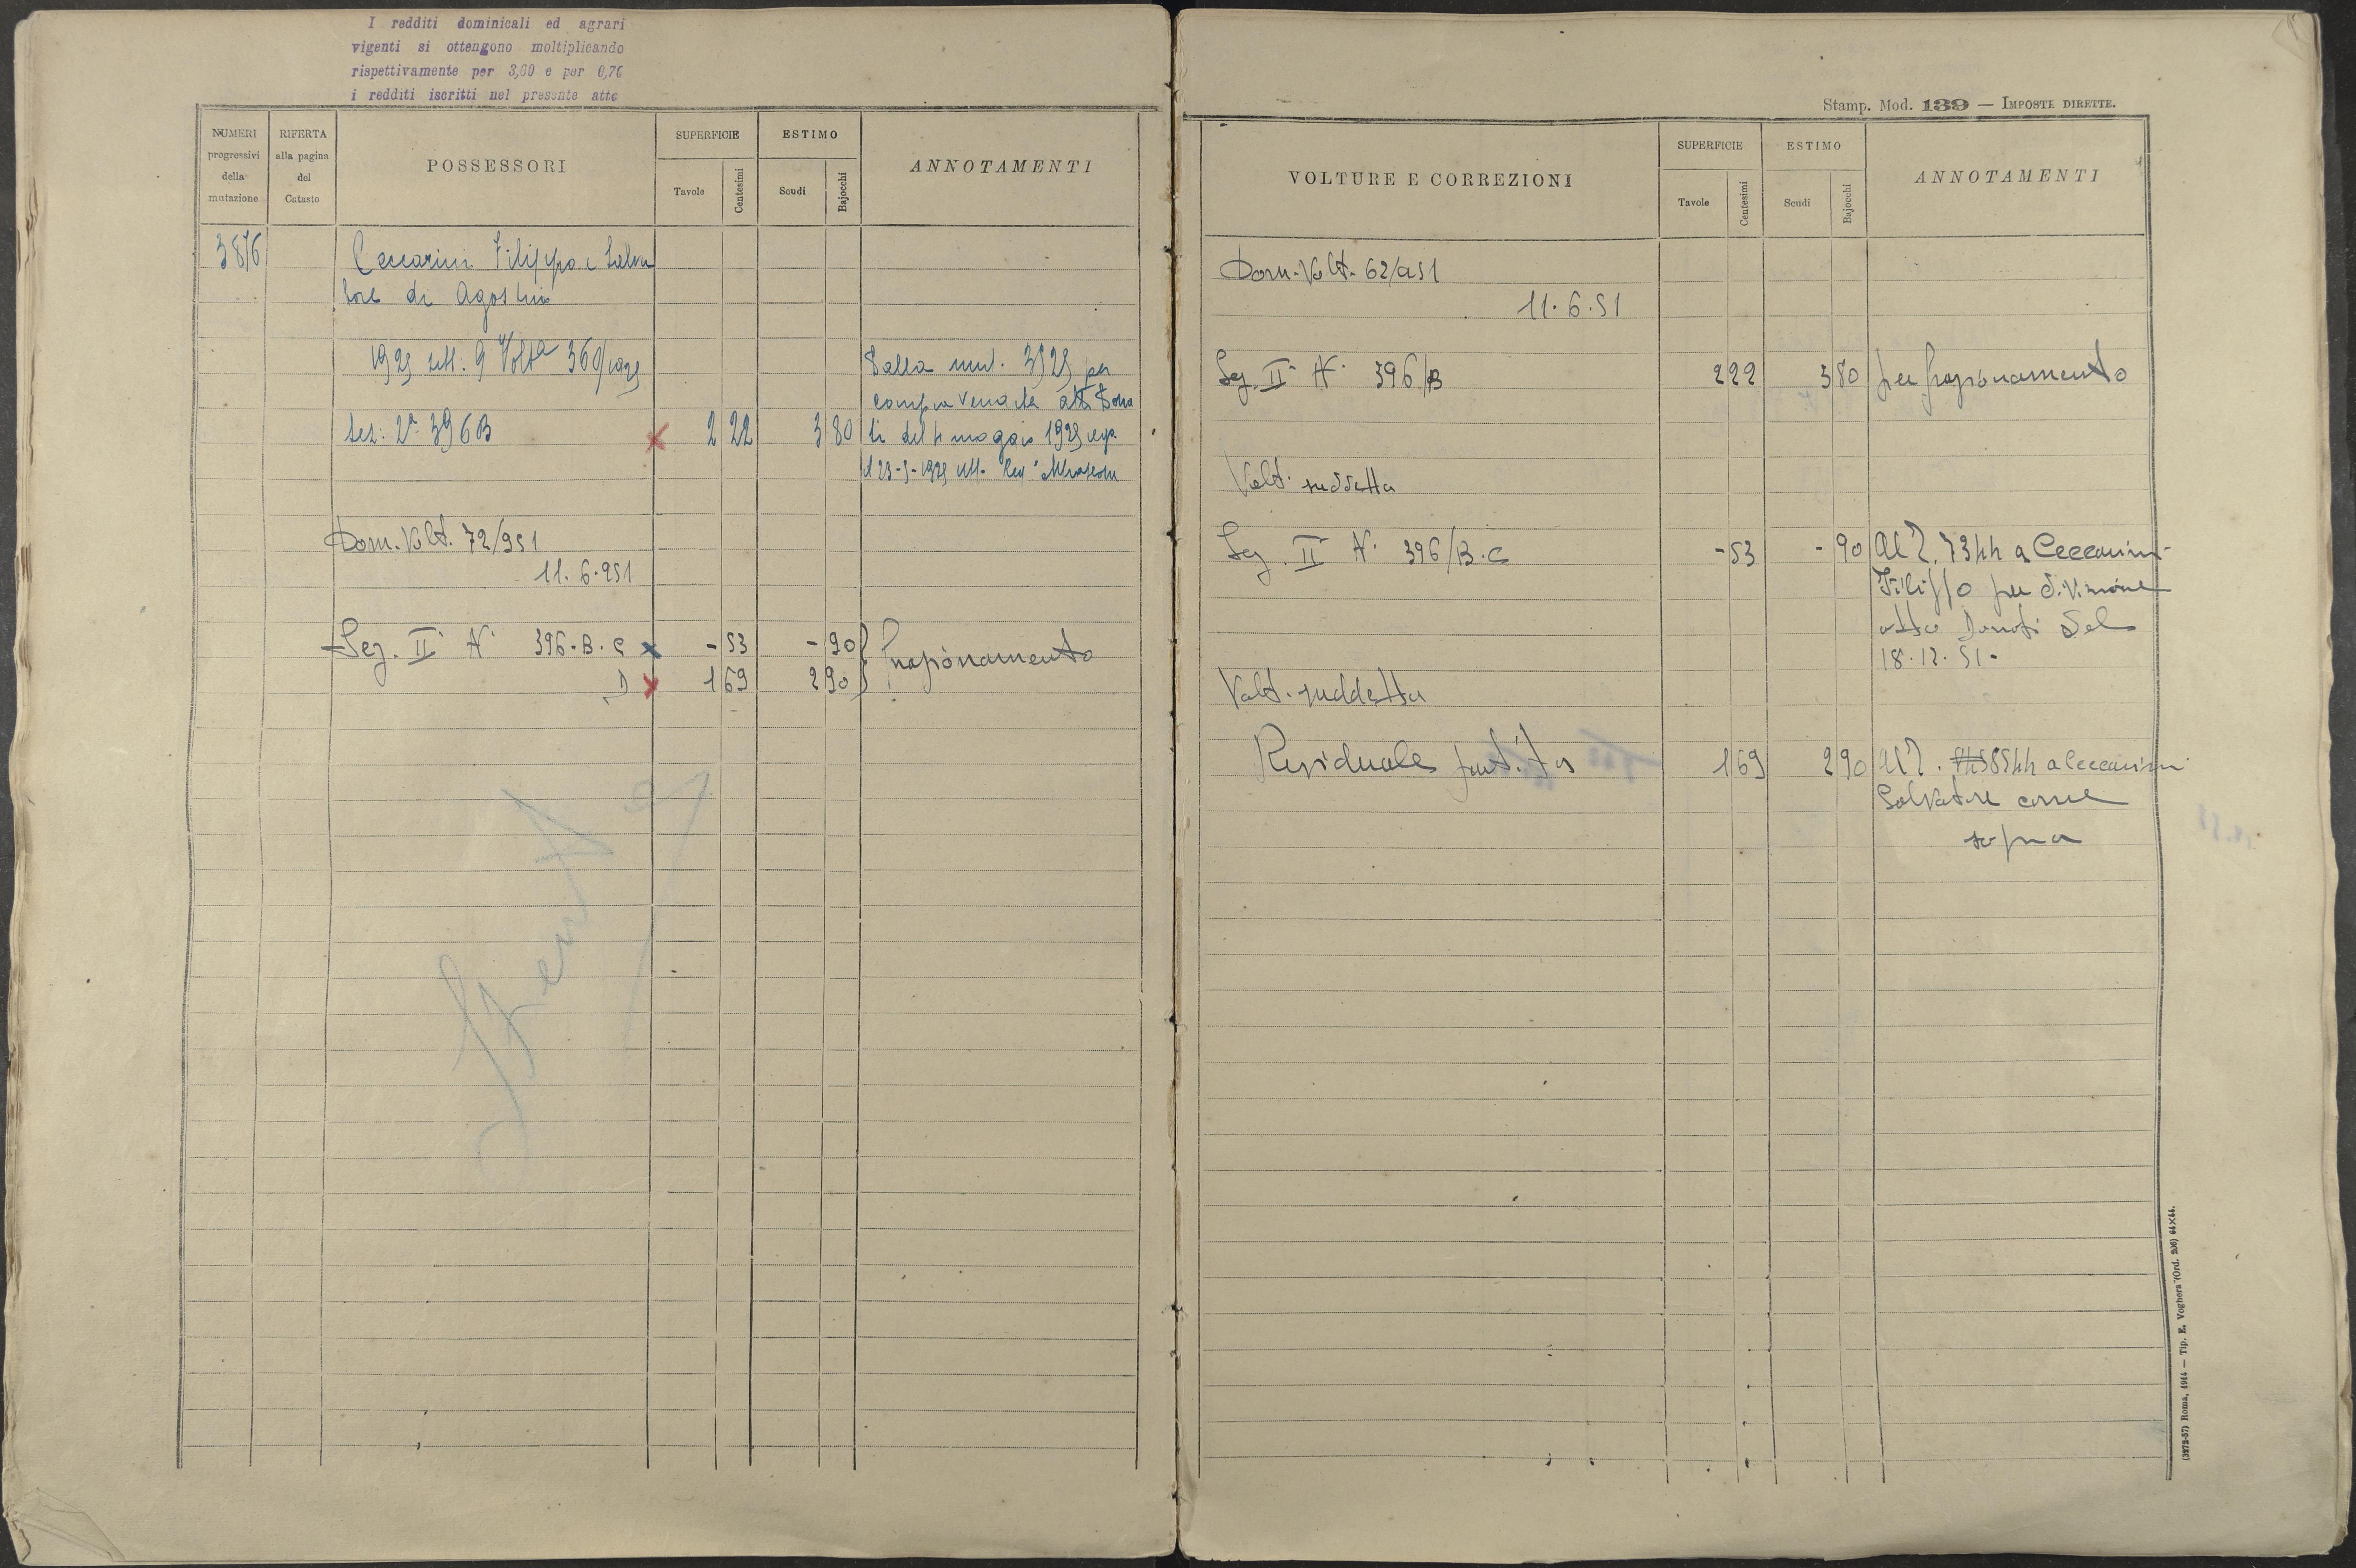 I redditi dominicali ed agrari
vigenti si ottengono moltiplicando
rispettivamente per 3,60 e per 0,76
i redditi iscritti nel presente atto
NUMERI progressivi della mutazione
RIFERTA alla pagina del Catasto
POSSESSORI
SUPERFICIE
Tavole
Centesimi
ESTIMO
Scudi
Bajocchi
ANNOTAMENTI
3876
Ceccarini Filippo e Salva
tore di Agostino
1925 sett. 9 Volta 360/1925
Dalla mut. 3525 per
compra vendita atto Dona
sez: 2ª 396 B 2 22 3 80 ti del 4 maggio 1925 reg.
il 23-5-1925
Dom. Volt. 72/951
11.6.951
Sez. II N. 396-B.C -53 -90
D 1 69 2 90
frazionamento
Spenta
Stamp. Mod. 139 — IMPOSTE DIRETTE.
VOLTURE E CORREZIONI
SUPERFICIE
Tavole
Centesimi
ESTIMO
Scudi
Bajocchi
ANNOTAMENTI
Dom. Volt. 62/951
11.6.51
Sez. II N. 396/B 2 22 3 80 per frazionamento
Volt. suddetta
Sez. II N. 396/B.C -53 -90 Al 7344 a Ceccarini
Filippo per divisione
atto Donati del
18.12.51.
Volt. suddetta
Residuale partita 1 69 2 90 a Ceccarini
Salvatore come
sopra
(3272-57) Roma, 1914 — Tip. E. Voghera (Ord. 206) 44×44.